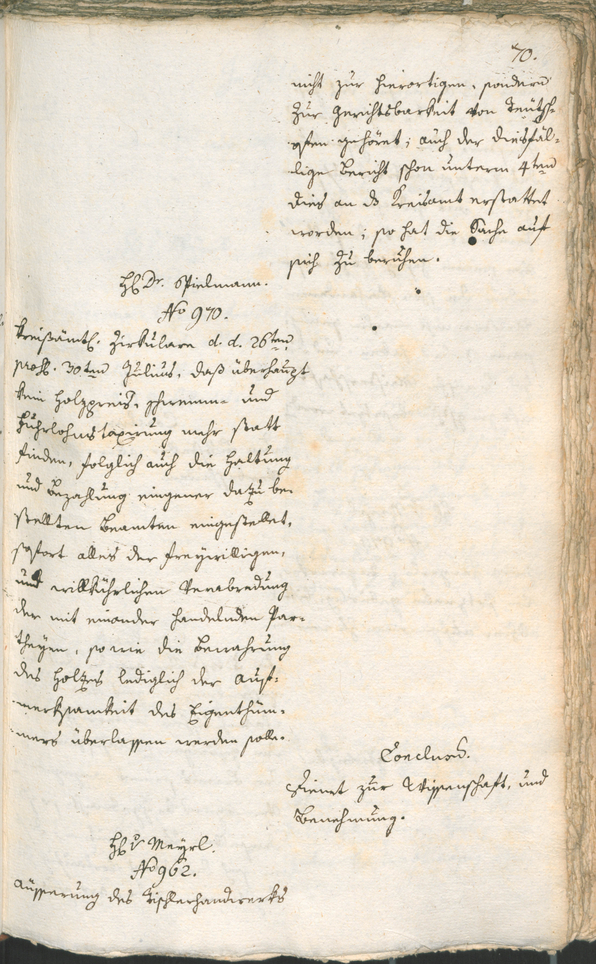 70.
nicht zur hierortigen, sondern
zur Gerichtsbarkeit von Teutsch-
ofen gehöret; auch der diesfäl-
lige Bericht schon unterm 4ten
dies an ds Kreisamt erstattet
worden; so hat die Sache auf
sich zu beruhen.
H: Dr. Spielmann.
No 970.
Kreisämtl. Zirkulare d. d. 26ten
pros. 30ten Julius, daß überhaupt
kein Holzpreis, Schwemm- und
Fuhrlohnstaxirung mehr statt
finden, folglich auch die Haltung
und Bezahlung eingener dazu be-
stellten Beamten eingestellet,
sofort alles der freywilligen,
und willkührlichen Verabredung
der mit einander handelnden Par-
theyen, so wie die Bewahrung
des Holtzes lediglich der Auf-
merksamkeit des Eigenthüm-
mers überlassen werden solle.
Conclus.
Dienet zur Wissenschaft, und
Benehmung.
H: v Meyrl.
No 962.
Äusserung des Tischlerhandwerks